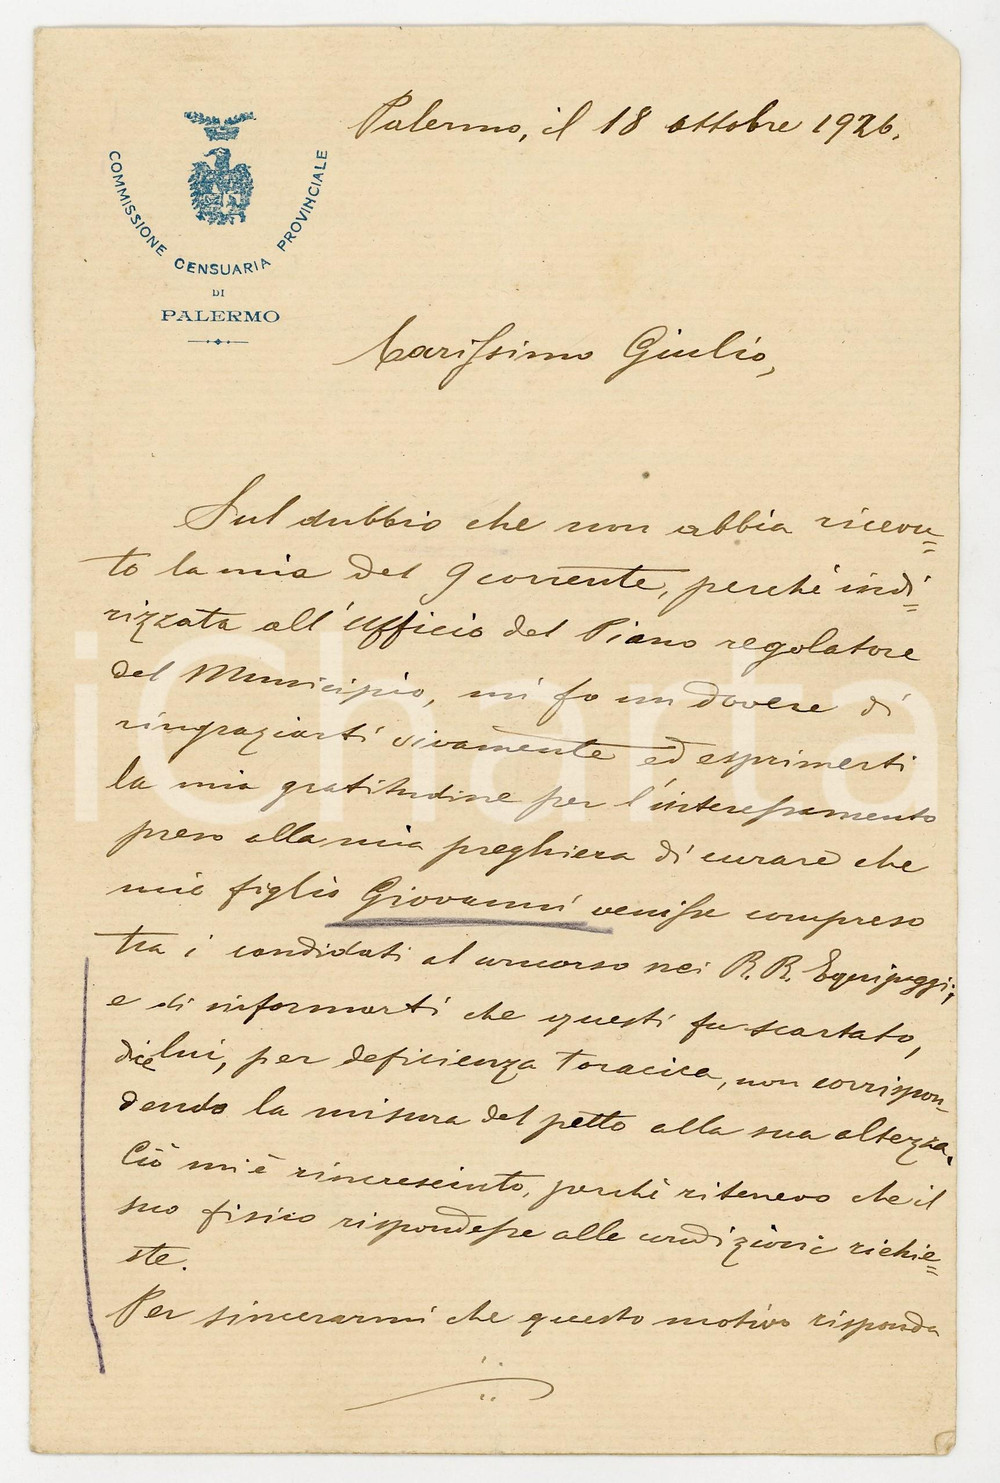 COMMISSIONE CENSUARIA PROVINCIALE
DI
PALERMO
Palermo, il 18 ottobre 1926.
Carissimo Giulio,
Sul dubbio che non abbia ricevu=
to la mia del 9 corrente, perchè indi=
rizzata all'Ufficio del Piano regolatore
del Municipio, mi fo un dovere di
ringraziarti vivamente ed esprimerti
la mia gratitudine per l'interessamento
preso alla mia preghiera di curare che
mio figlio Giovanni venisse compreso
tra i candidati al concorso nei R.R. Equipaggi;
e di informarti che questi fu scartato,
dice lui, per deficienza toracica, non corrispon-
dendo la misura del petto alla sua altezza.
Ciò mi è rincresciuto, perchè ritenevo che il
suo fisico rispondesse alle condizioni richie=
ste.
Per sincerarmi che questo motivo risponda
iCharta